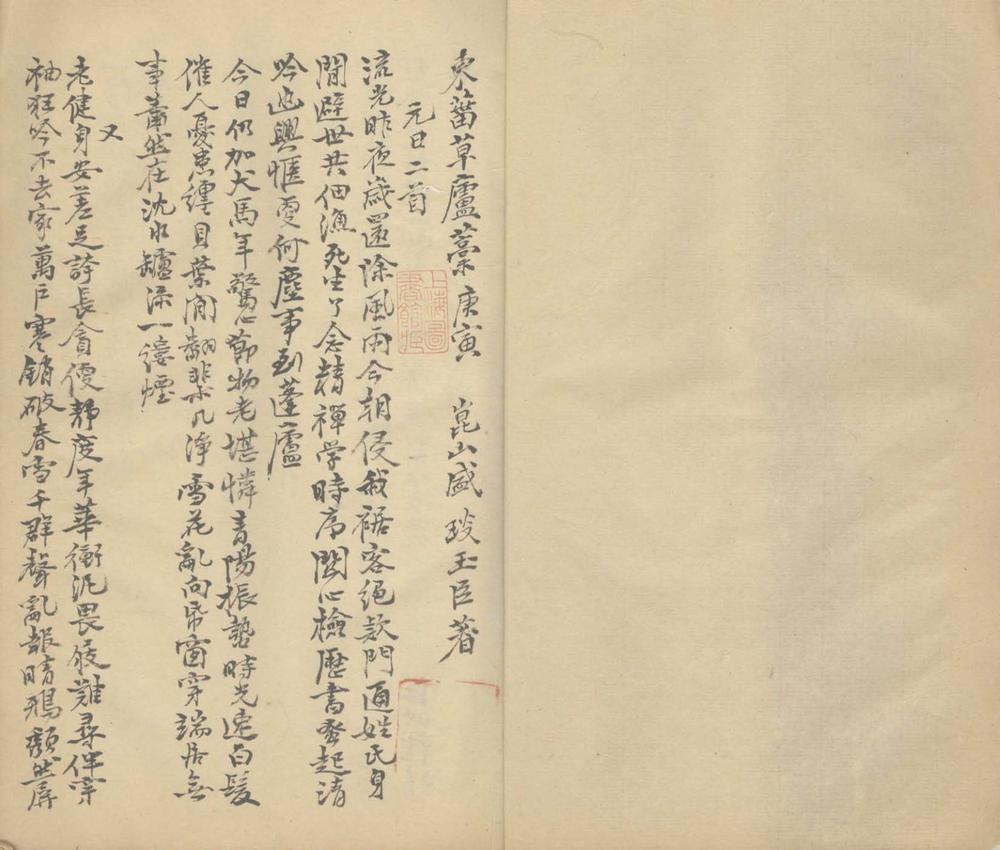 東菑草廬藁庚寅　崑山盛琰玉臣著
元日二首
流光昨夜歲還除風雨今朝侵我裾客絕款門通姓氏身
閒避世共佃漁死生了念精禪学時序關心檢歷書發起清
吟逸興愜更何塵事到蓬廬
今日仍加犬馬年驚心節物老堪憐青陽振蟄時光速白髮
催人憂患纏貝葉閒翻棐几淨雪花亂向吊窗穿端居無
事蕭然在沈水罏添一縷煙
又
老健身安差足誇長貪優靜度年華衝泥畏屐難尋伴穿
袖狂吟不去家萬戶寒銷破春雪千群聲亂報晴鴉頹然屏
上海圖書館藏